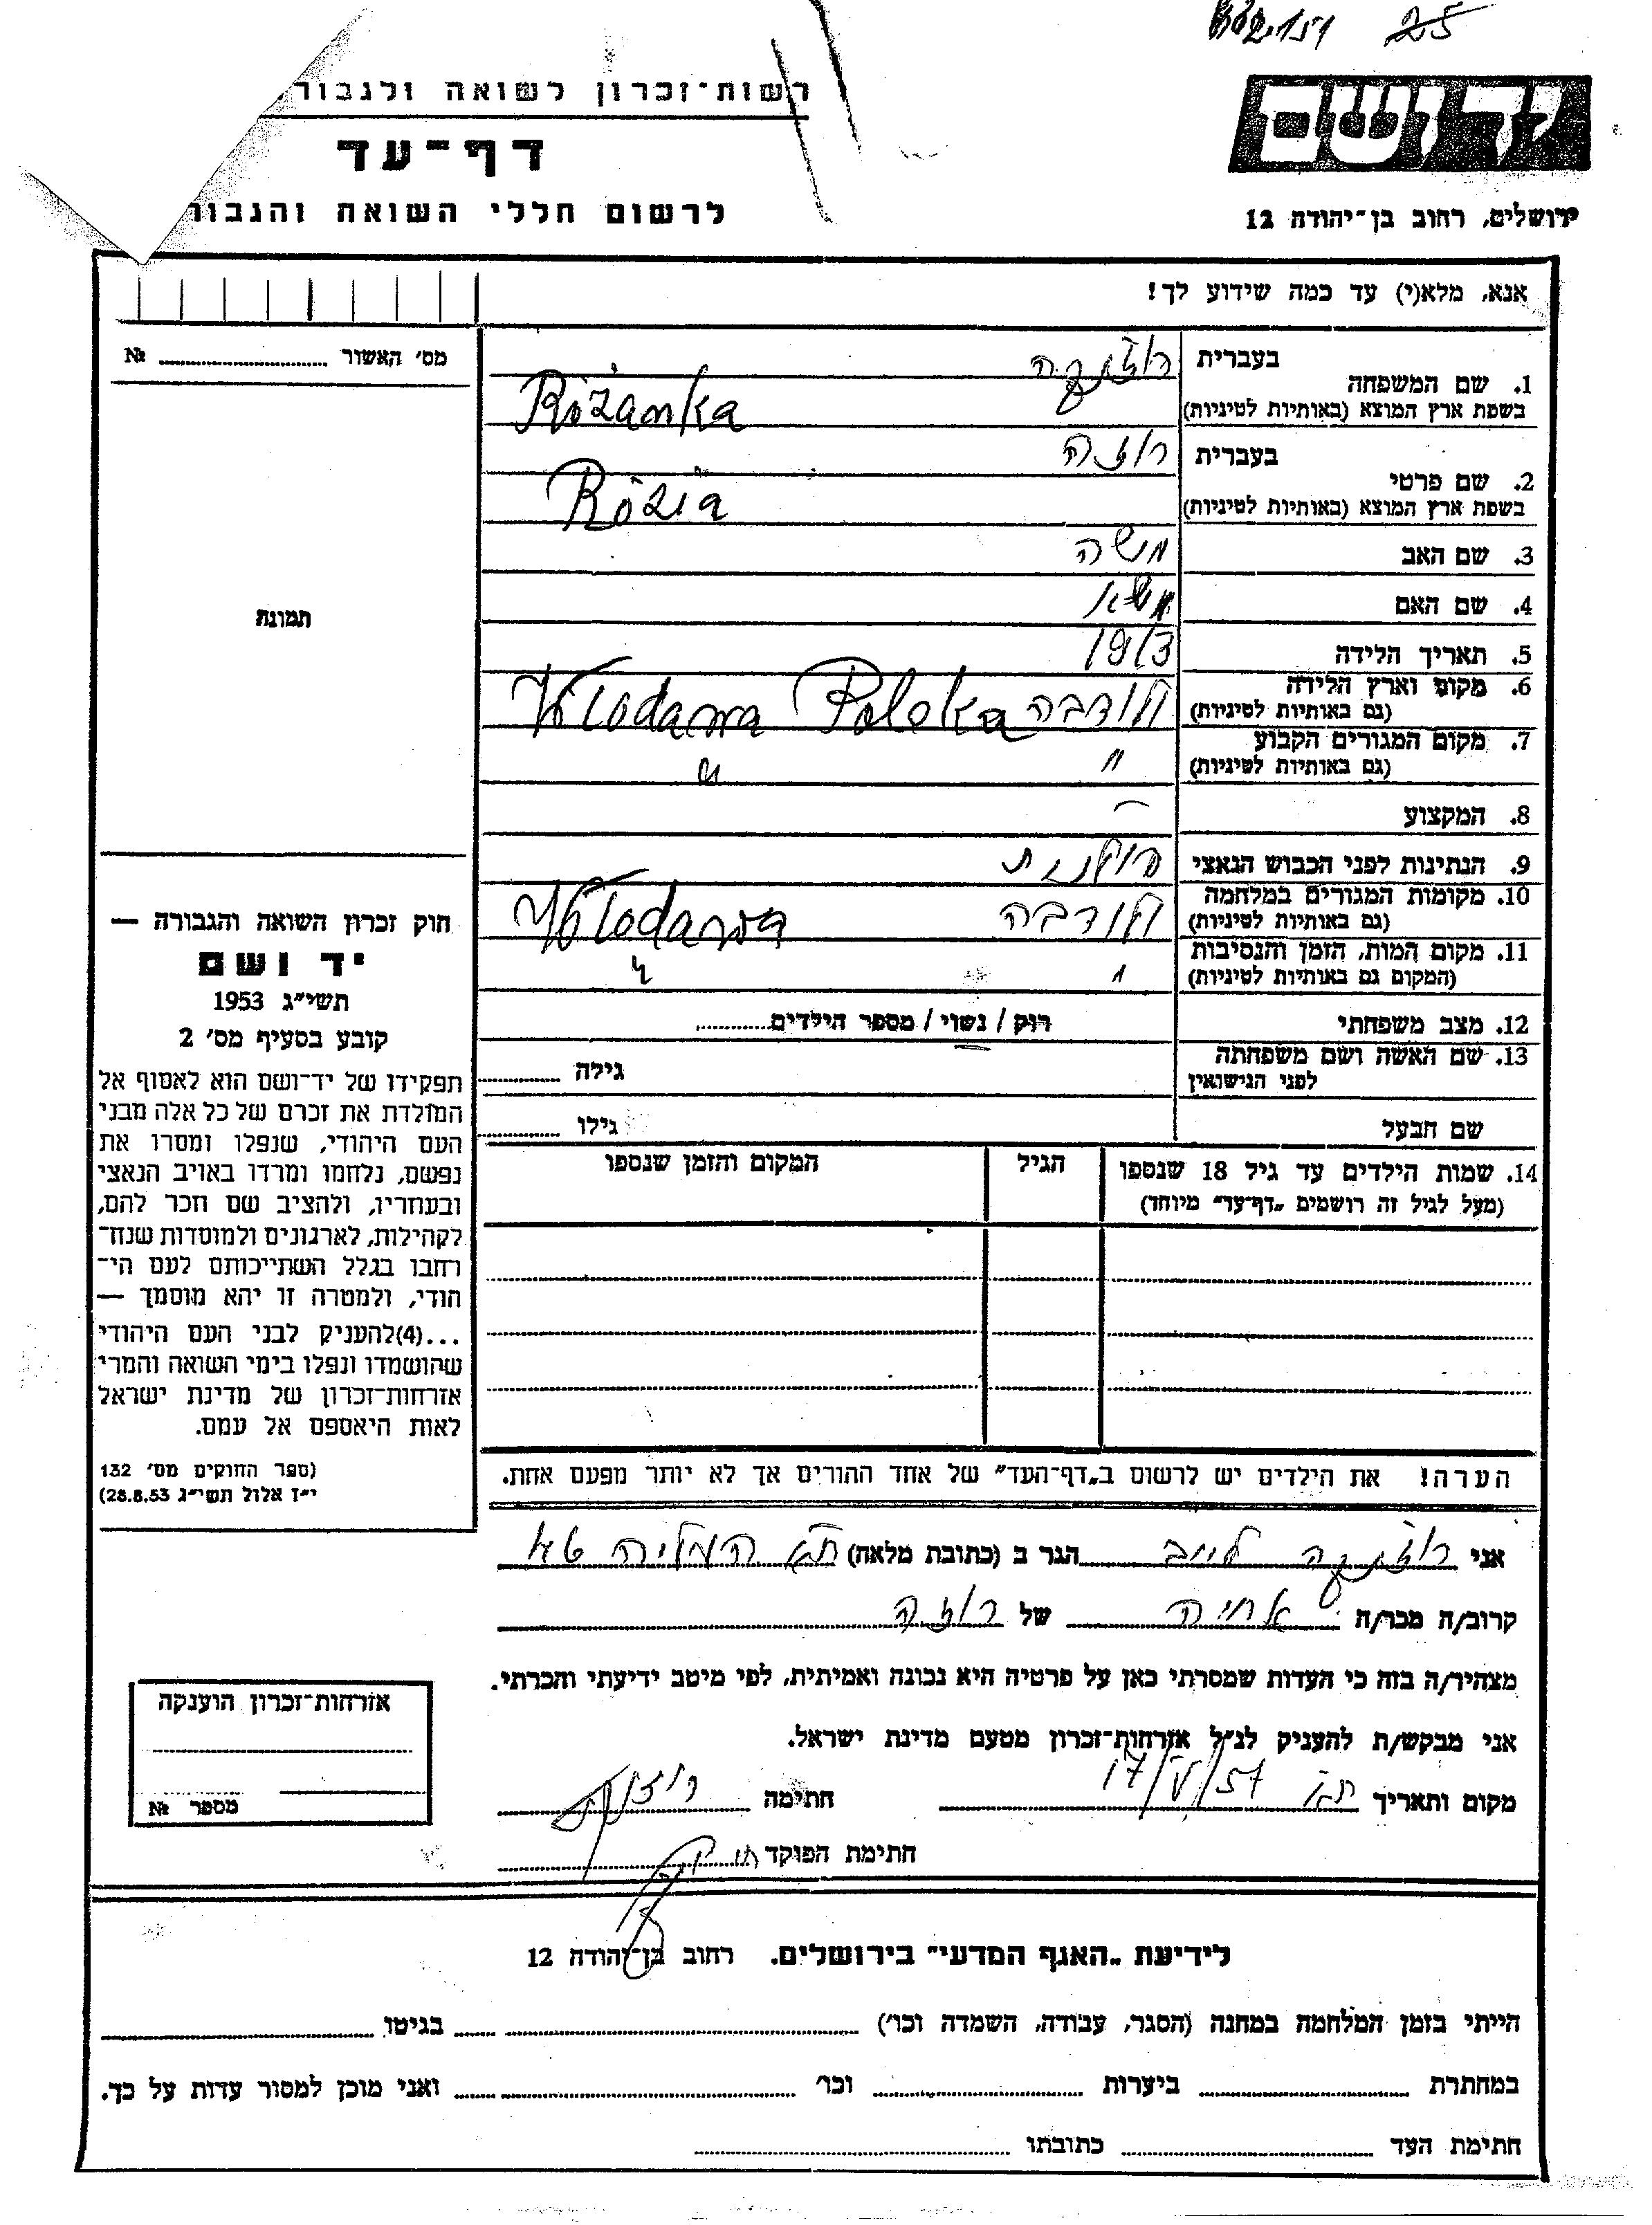 25
רשות־זכרון לשואה ולגבור
דף־עד
לרשום חללי השואה והגבור
יד ושם
ירושלים, רחוב בן־יהודה 12
אנא, מלא(י) עד כמה שידוע לך!
מס' האשור № 
תמונה
1. שם המשפחה
בעברית רוז'נקה
בשפת ארץ המוצא (באותיות לטיניות) Różanka
2. שם פרטי
בעברית רוזה
בשפת ארץ המוצא (באותיות לטיניות) Rózia
3. שם האב משה
4. שם האם
5. תאריך הלידה 1913
6. מקום וארץ הלידה ולודבה Włodawa Polska
(גם באותיות לטיניות)
7. מקום המגורים הקבוע " "
(גם באותיות לטיניות)
8. המקצוע –
9. הנתינות לפני הכבוש הנאצי פולנית
10. מקומות המגורים במלחמה ולודבה Włodawa
(גם באותיות לטיניות)
11. מקום המות, הזמן והנסיבות " "
(המקום גם באותיות לטיניות)
12. מצב משפחתי רוק / נשוי / מספר הילדים
13. שם האשה ושם משפחתה
לפני הנישואין גילה
שם הבעל גילו
14. שמות הילדים עד גיל 18 שנספו הגיל המקום והזמן שנספו
(מעל לגיל זה רושמים "דף־עד" מיוחד)
הערה! את הילדים יש לרשום ב"דף־העד" של אחד ההורים אך לא יותר מפעם אחת.
חוק זכרון השואה והגבורה —
יד ושם
תשי"ג 1953
קובע בסעיף מס' 2
תפקידו של יד־ושם הוא לאסוף אל
המולדת את זכרם של כל אלה מבני
העם היהודי, שנפלו ומסרו את
נפשם, נלחמו ומרדו באויב הנאצי
ובעוזריו, ולהציב שם וזכר להם,
לקהילות, לארגונים ולמוסדות שנח־
רבו בגלל השתייכותם לעם הי־
הודי, ולמטרה זו יהא מוסמך —
...(4) להעניק לבני העם היהודי
שהושמדו ונפלו בימי השואה והמרי
אזרחות־זכרון של מדינת ישראל
לאות היאספם אל עמם.
(ספר החוקים מס' 132
י"ז אלול תשי"ג 28.8.53)
אני רוז'נקה לייב הגר ב (כתובת מלאה) ת"א
קרוב/ה מכר/ה אחיה של רוזה
מצהיר/ה בזה כי העדות שמסרתי כאן על פרטיה היא נכונה ואמיתית, לפי מיטב ידיעתי והכרתי.
אני מבקש/ת להעניק לנ"ל אזרחות־זכרון מטעם מדינת ישראל.
מקום ותאריך ת"א 17/V/57 חתימה
חתימת הפוקד
אזרחות־זכרון הוענקה
מספר №
לידיעת "האגף המדעי" בירושלים. רחוב בן־יהודה 12
הייתי בזמן המלחמה במחנה (הסגר, עבודה, השמדה וכו') בגיטו
במחתרת ביערות וכו' ואני מוכן למסור עדות על כך.
חתימת העד כתובתו